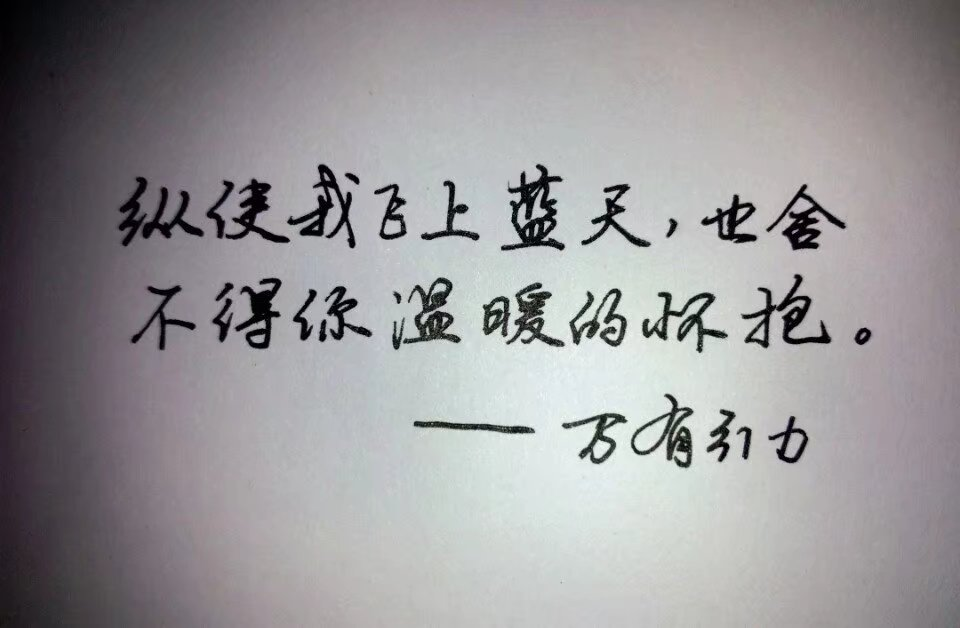 纵使我飞上蓝天，也舍
不得你温暖的怀抱。
——万有引力